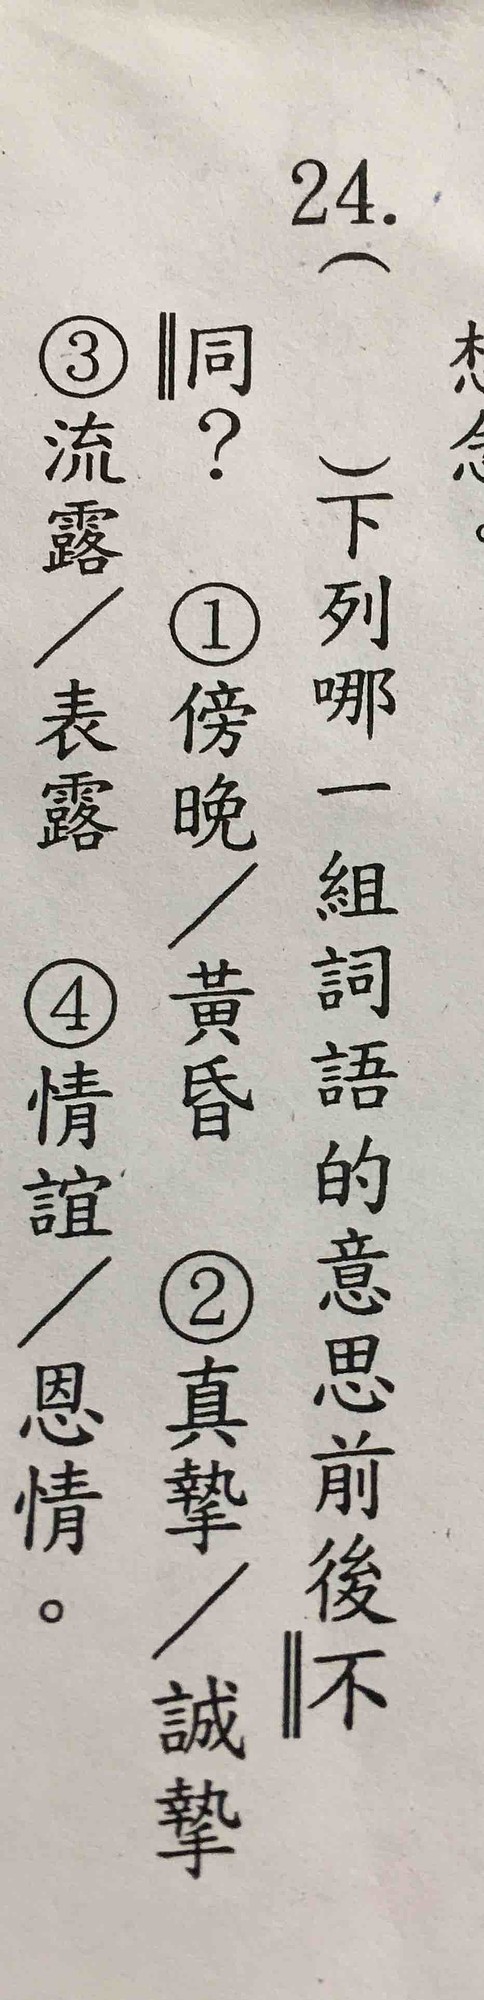 想念。
24.（　）下列哪一組詞語的意思前後不
同？　①傍晚／黃昏　②真摯／誠摯
③流露／表露　④情誼／恩情。